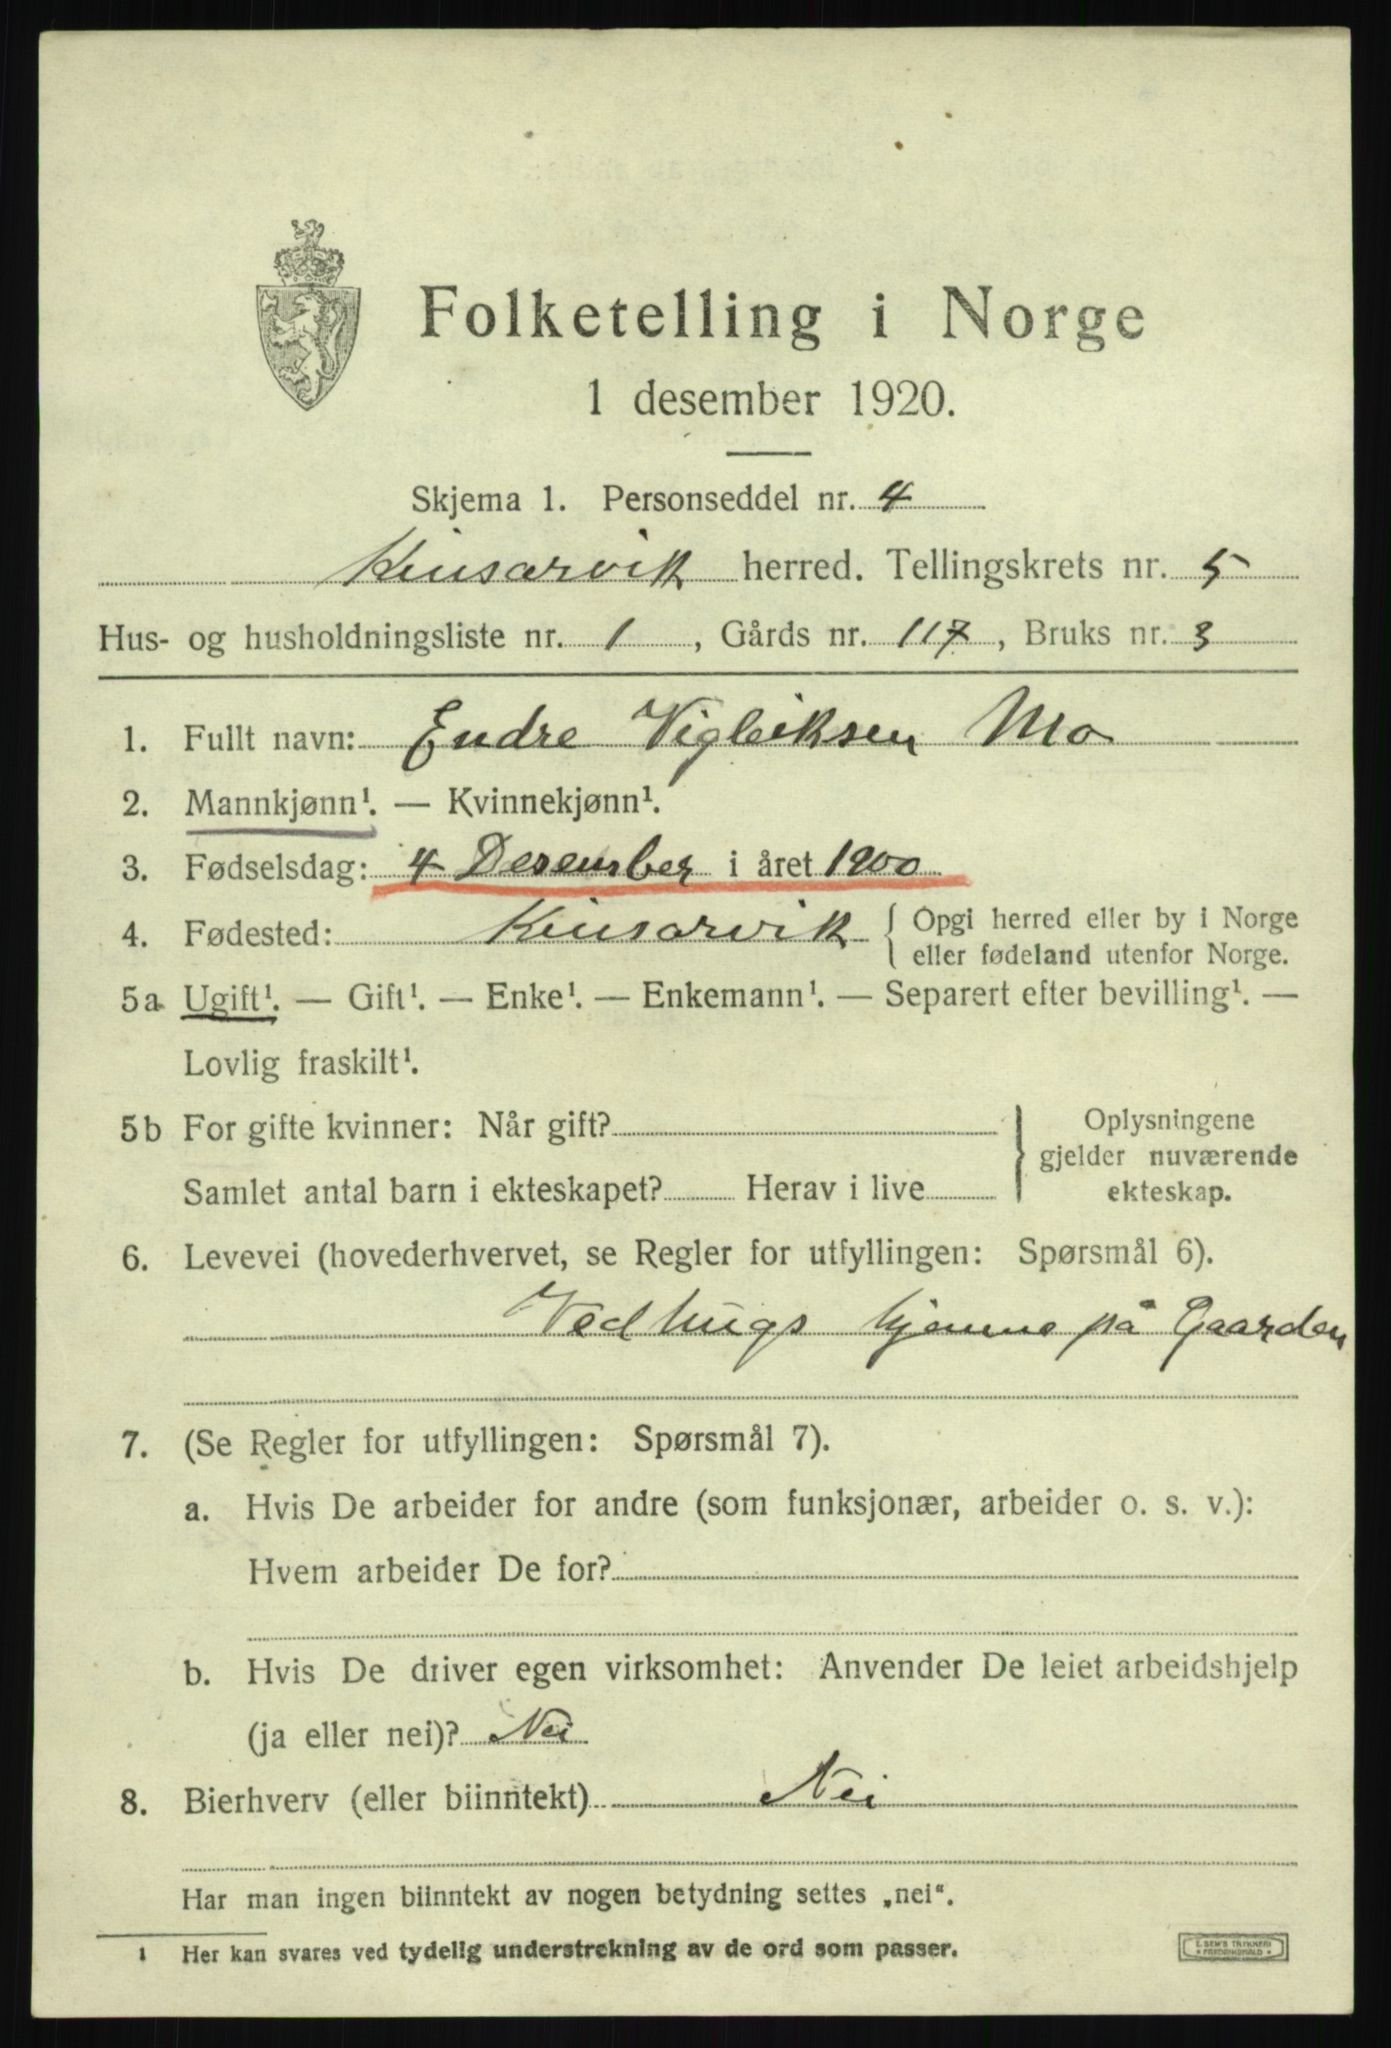 Folketelling i Norge
1 desember 1920.
Skjema 1. Personseddel nr. 4
Kinsarvik herred. Tellingskrets nr. 5
Hus- og husholdningsliste nr. 1, Gårds nr. 117, Bruks nr. 3
1. Fullt navn: Endre Vigleiksen Mo
2. Mannkjønn¹. — Kvinnekjønn¹.
3. Fødselsdag: 4 Desember i året 1900
4. Fødested: Kinsarvik { Opgi herred eller by i Norge
eller fødeland utenfor Norge.
5a Ugift¹. — Gift¹. — Enke¹. — Enkemann¹. — Separert efter bevilling¹. —
Lovlig fraskilt¹.
5b For gifte kvinner: Når gift?
Samlet antal barn i ekteskapet? Herav i live
} Oplysningene
gjelder nuværende
ekteskap.
6. Levevei (hovederhvervet, se Regler for utfyllingen: Spørsmål 6).
Ved hugs hjemme på Gaarden
7. (Se Regler for utfyllingen: Spørsmål 7).
a. Hvis De arbeider for andre (som funksjonær, arbeider o. s. v.):
Hvem arbeider De for?
b. Hvis De driver egen virksomhet: Anvender De leiet arbeidshjelp
(ja eller nei)? Nei
8. Bierhverv (eller biinntekt) Nei
Har man ingen biinntekt av nogen betydning settes „nei“.
1 Her kan svares ved tydelig understrekning av de ord som passer.
E. SEM'S TRYKKERI
FREDRIKSHALD